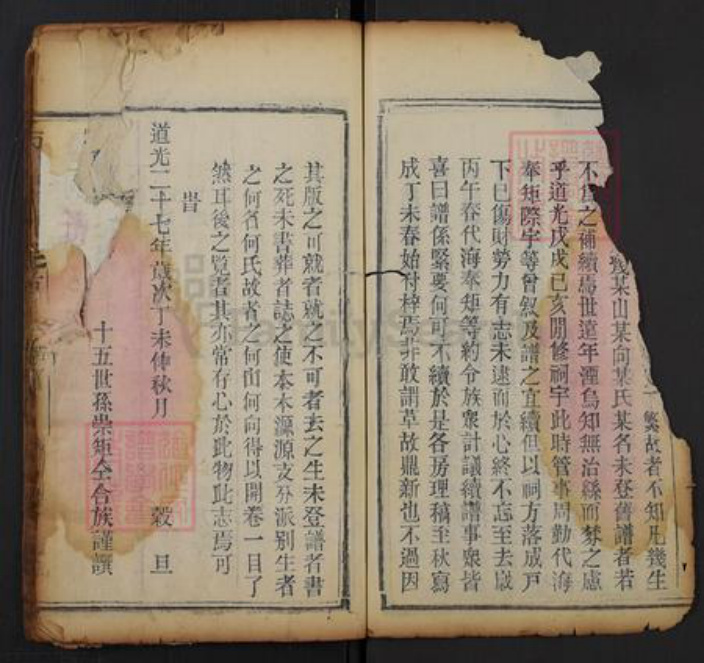 一繁故者不知凡幾生
幾某山某向某氏某名未登舊譜者若
不爲之補續焉世遠年湮烏知無治絲而棼之慮
乎道光戊戌己亥間修祠宇此時管事周勤代海
奉矩際宇等曾叙及譜之宜續但以祠方落成戸
下已傷財勞力有志未逮而於心終不忘至去歲
丙午春代海奉矩等約令族衆計議續譜事衆皆
喜曰譜係緊要何可不續於是各房理稿至秋寫
成丁未春始付梓焉非敢謂革故鼎新也不過因
其版之可就者就之不可者去之生未登譜者書
之死未書葬者誌之使本本源源支分派别生者
之何名何氏故者之何山何向得以開卷一目了
然耳後之覧者其亦常存心於此物此志焉可
旹
道光二十七年歲次丁未仲秋月 穀旦
十五世孫崇矩仝合族謹譔